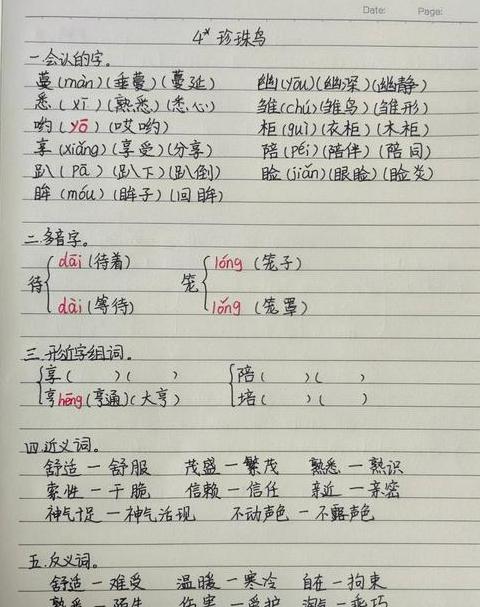 Date: Page:
4* 珍珠鸟
一.会认的字。
蔓(màn)(垂蔓)(蔓延) 幽(yōu)(幽深)(幽静)
悉(xī)(熟悉)(悉心) 雏(chú)(雏鸟)(雏形)
哟(yō)(哎哟) 柜(guì)(衣柜)(木柜)
享(xiǎng)(享受)(分享) 陪(péi)(陪伴)(陪同)
趴(pā)(趴下)(趴倒) 睑(jiǎn)(眼睑)(睑炎)
眸(móu)(眸子)(回眸)
二.多音字。
待 dāi(待着) 笼 lóng(笼子)
dài(等待) lǒng(笼罩)
三.形近字组词。
享( )( ) 陪( )( )
亨hēng(亨通)(大亨) 培( )( )
四.近义词。
舒适一舒服 茂盛一繁茂 熟悉一熟识
索性一干脆 信赖一信任 亲近一亲密
神气十足一神气活现 不动声色一不露声色
五.反义词。
舒适一难受 温暖一寒冷 自在一拘束
熟悉一陌生 伤害一爱护 淘气一乖巧